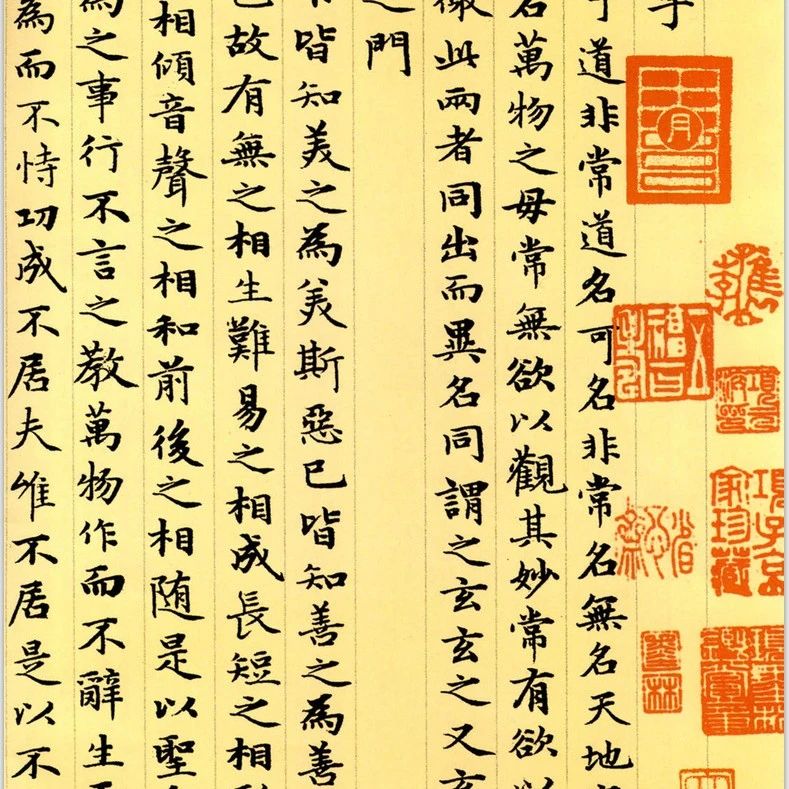 子
道非常道名可名非常名無名天地
名萬物之母常無欲以觀其妙常有欲以
徼此兩者同出而異名同謂之玄玄之又玄
之門
皆知美之為美斯惡已皆知善之為善
已故有無之相生難易之相成長短之相
相傾音聲之相和前後之相随是以聖
為之事行不言之教萬物作而不辭生
為而不恃功成不居夫唯不居是以不
項子京家珍藏
墨林